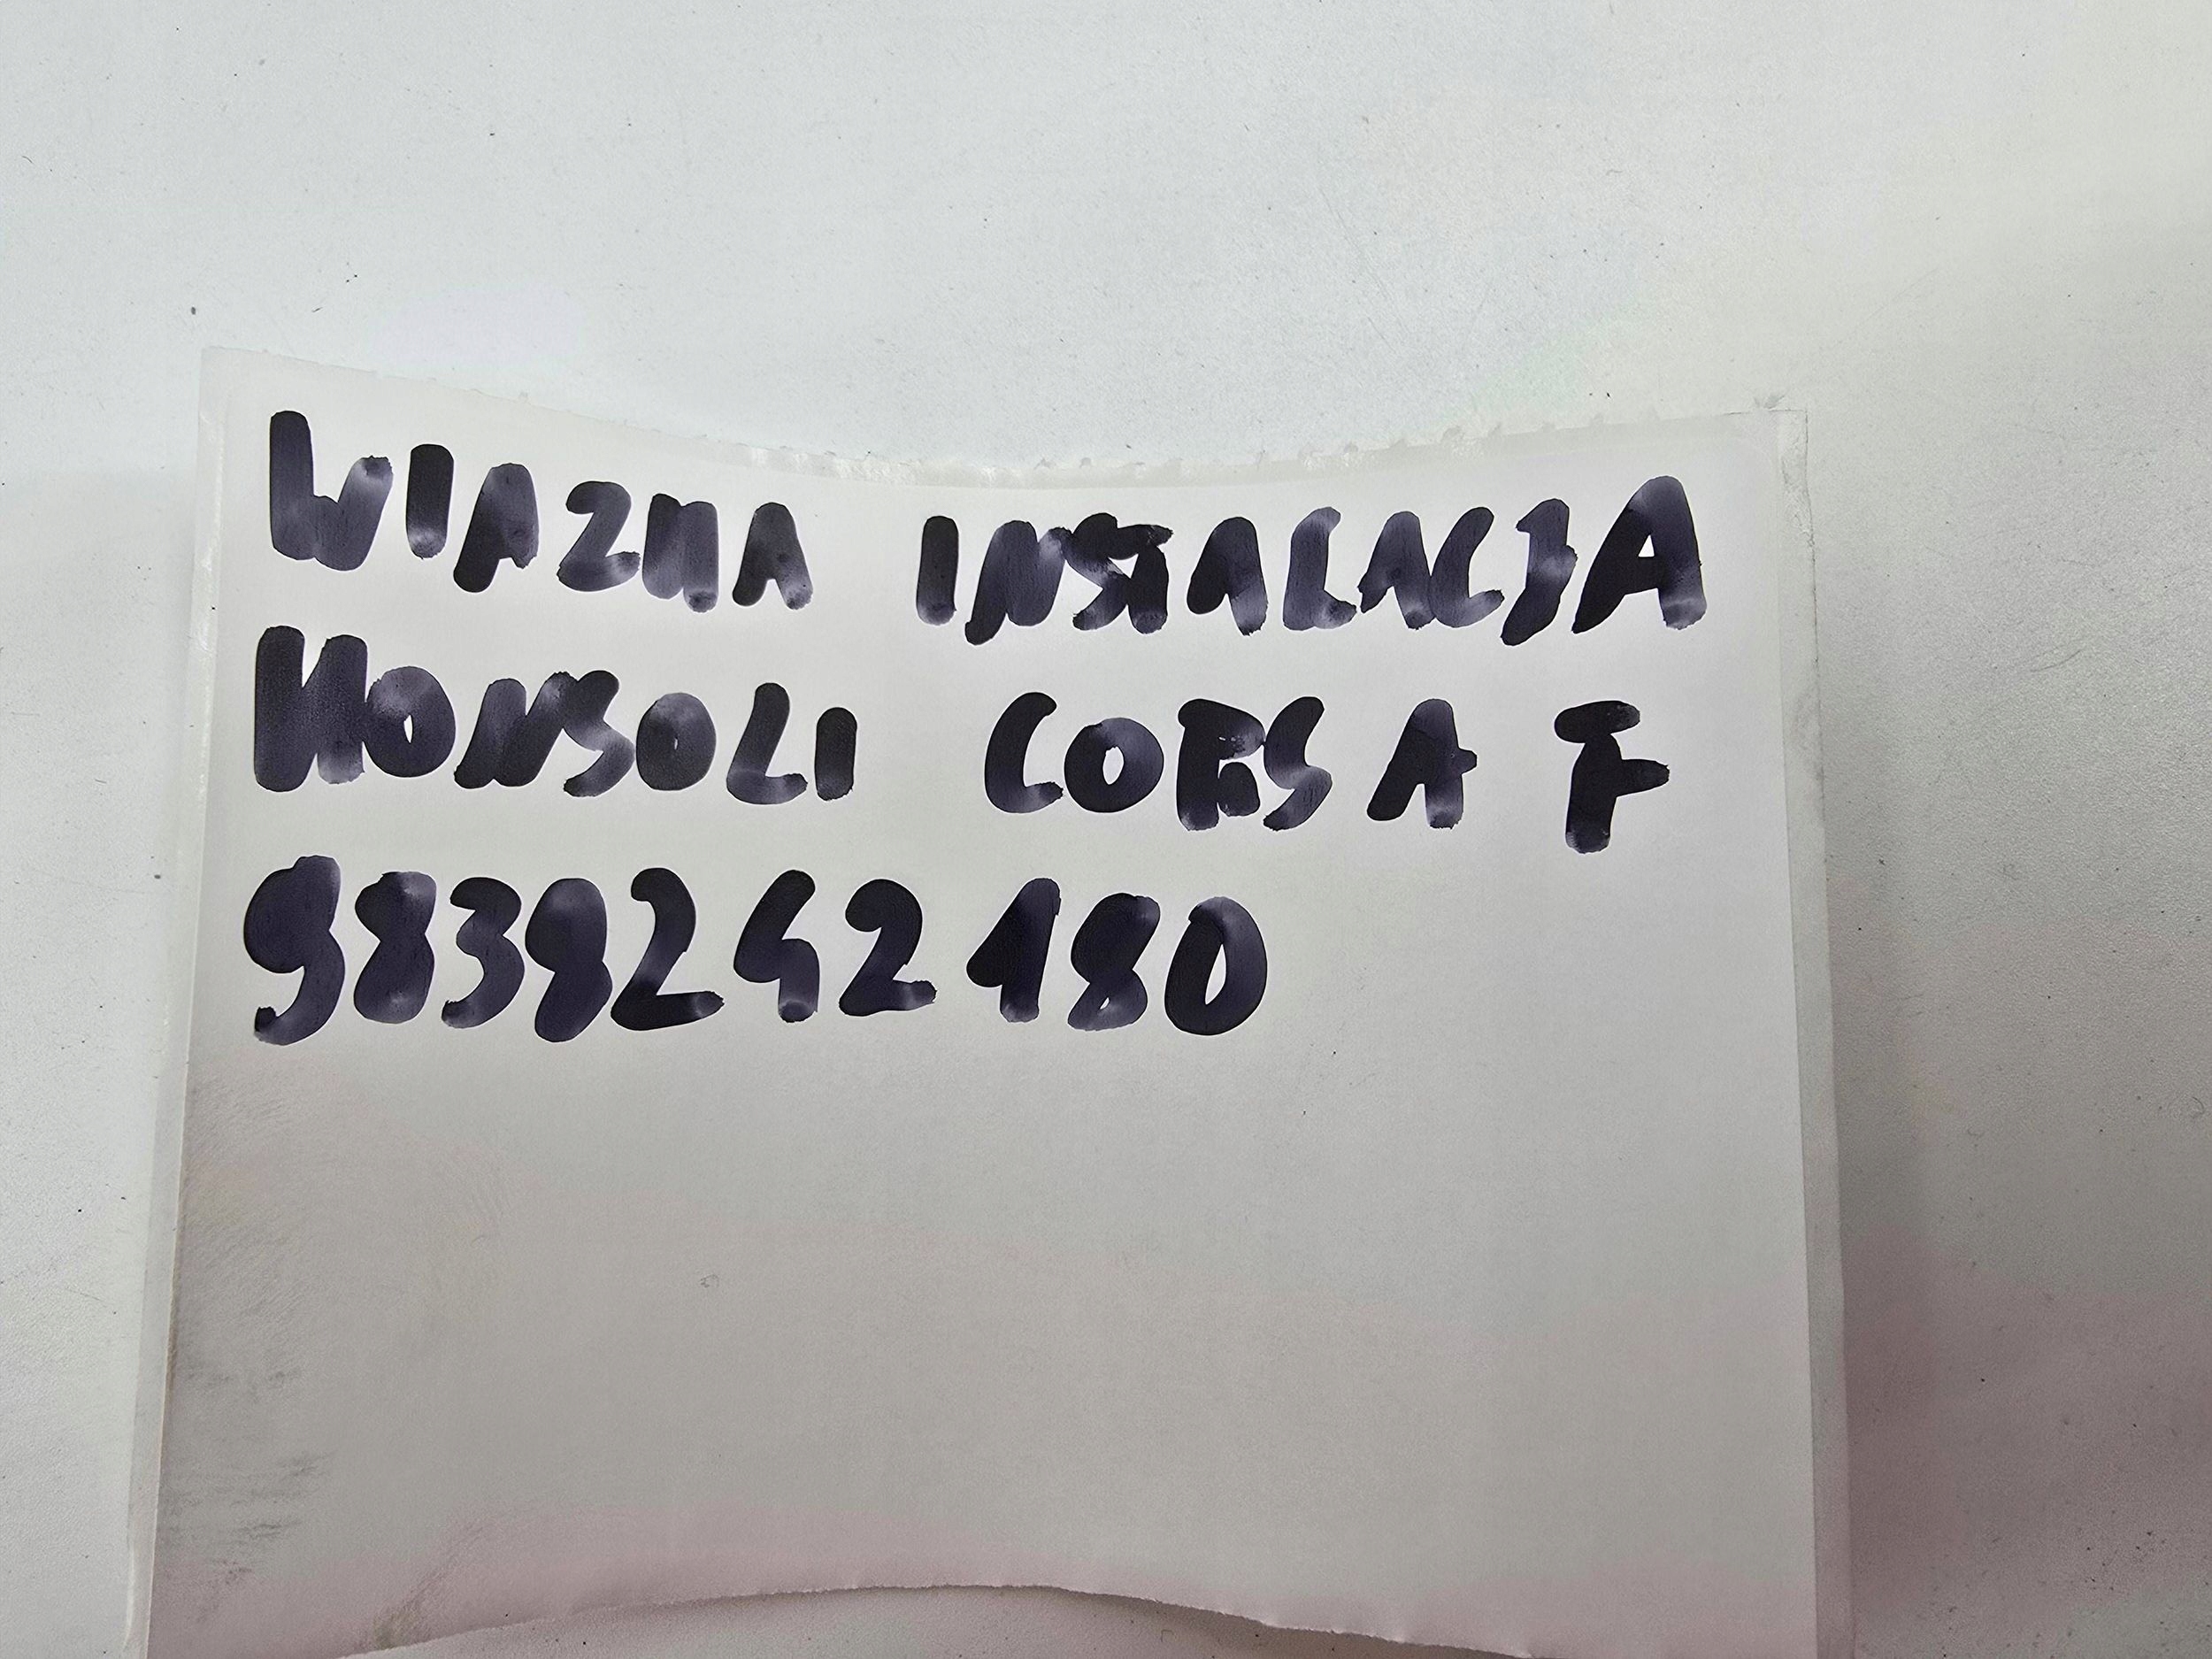 WIAZKA INSTALACJA
KONSOLI CORSA F
9838242180